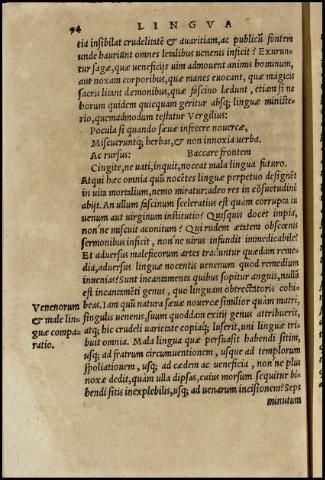 94 LINGVA
tia insibilat crudelitatē & auaritiam, ac publicū fontem
unde hauriunt omnes letalibus uenenis inficit? Exurun-
tur sagæ, quæ ueneficijs uim admouent animis hominum,
aut noxam corporibus, quæ manes euocant, quæ magicis
sacris litant dæmonibus, quæ fascino lædunt, etiam si ne
horum quidem quicquam geritur absq; linguæ ministe-
rio, quemadmodum testatur Vergilius:
Pocula si quando sæuæ infecere nouercæ,
Miscueruntq; herbas, & non innoxia uerba.
Ac rursus: Baccare frontem
Cingite, ne uati, inquit, noceat mala lingua futuro.
Atqui hæc omnia quū nocētes linguæ perpetuo designēt
in uita mortalium, nemo miratur: adeo res in cōsuetudinē
abijt. An ullum fascinum sceleratius est quàm corrupta iu
uenum aut uirginum institutio? Quisquis docet impia,
non ne nascuit aconitum? Qui rudem ætatem obscœnis
sermonibus inficit, non ne uirus infundit immedicabile?
Et aduersus maleficorum artes traduntur quædam reme-
dia, aduersus linguæ nocentis uenenum quod remedium
inuenias? Sunt incantamenta quibus sopitur anguis, nullū
est incantamēti genus, quo linguam obtrectatoris cohi-
beas. Iam quū natura sæuæ nouercæ similior quàm matri,
singulis uenenis, suum quoddam exitij genus attribuerit,
atq; hic crudeli uarietate copiaq; luserit, uni linguæ tri-
buit omnia. Mala lingua quæ persuasit habendi sitim,
usq; ad fratrum circumuentionem, usque ad templorum
spoliationem, usq; ad cædem ac ueneficia, non ne plus
noxæ dedit, quàm ulla dipsas, cuius morsum sequitur bi-
bendi sitis inexplebilis, usq; ad uenarum incisionem? Seps
minutum
Venenorum
& male lin-
guæ compa-
ratio.